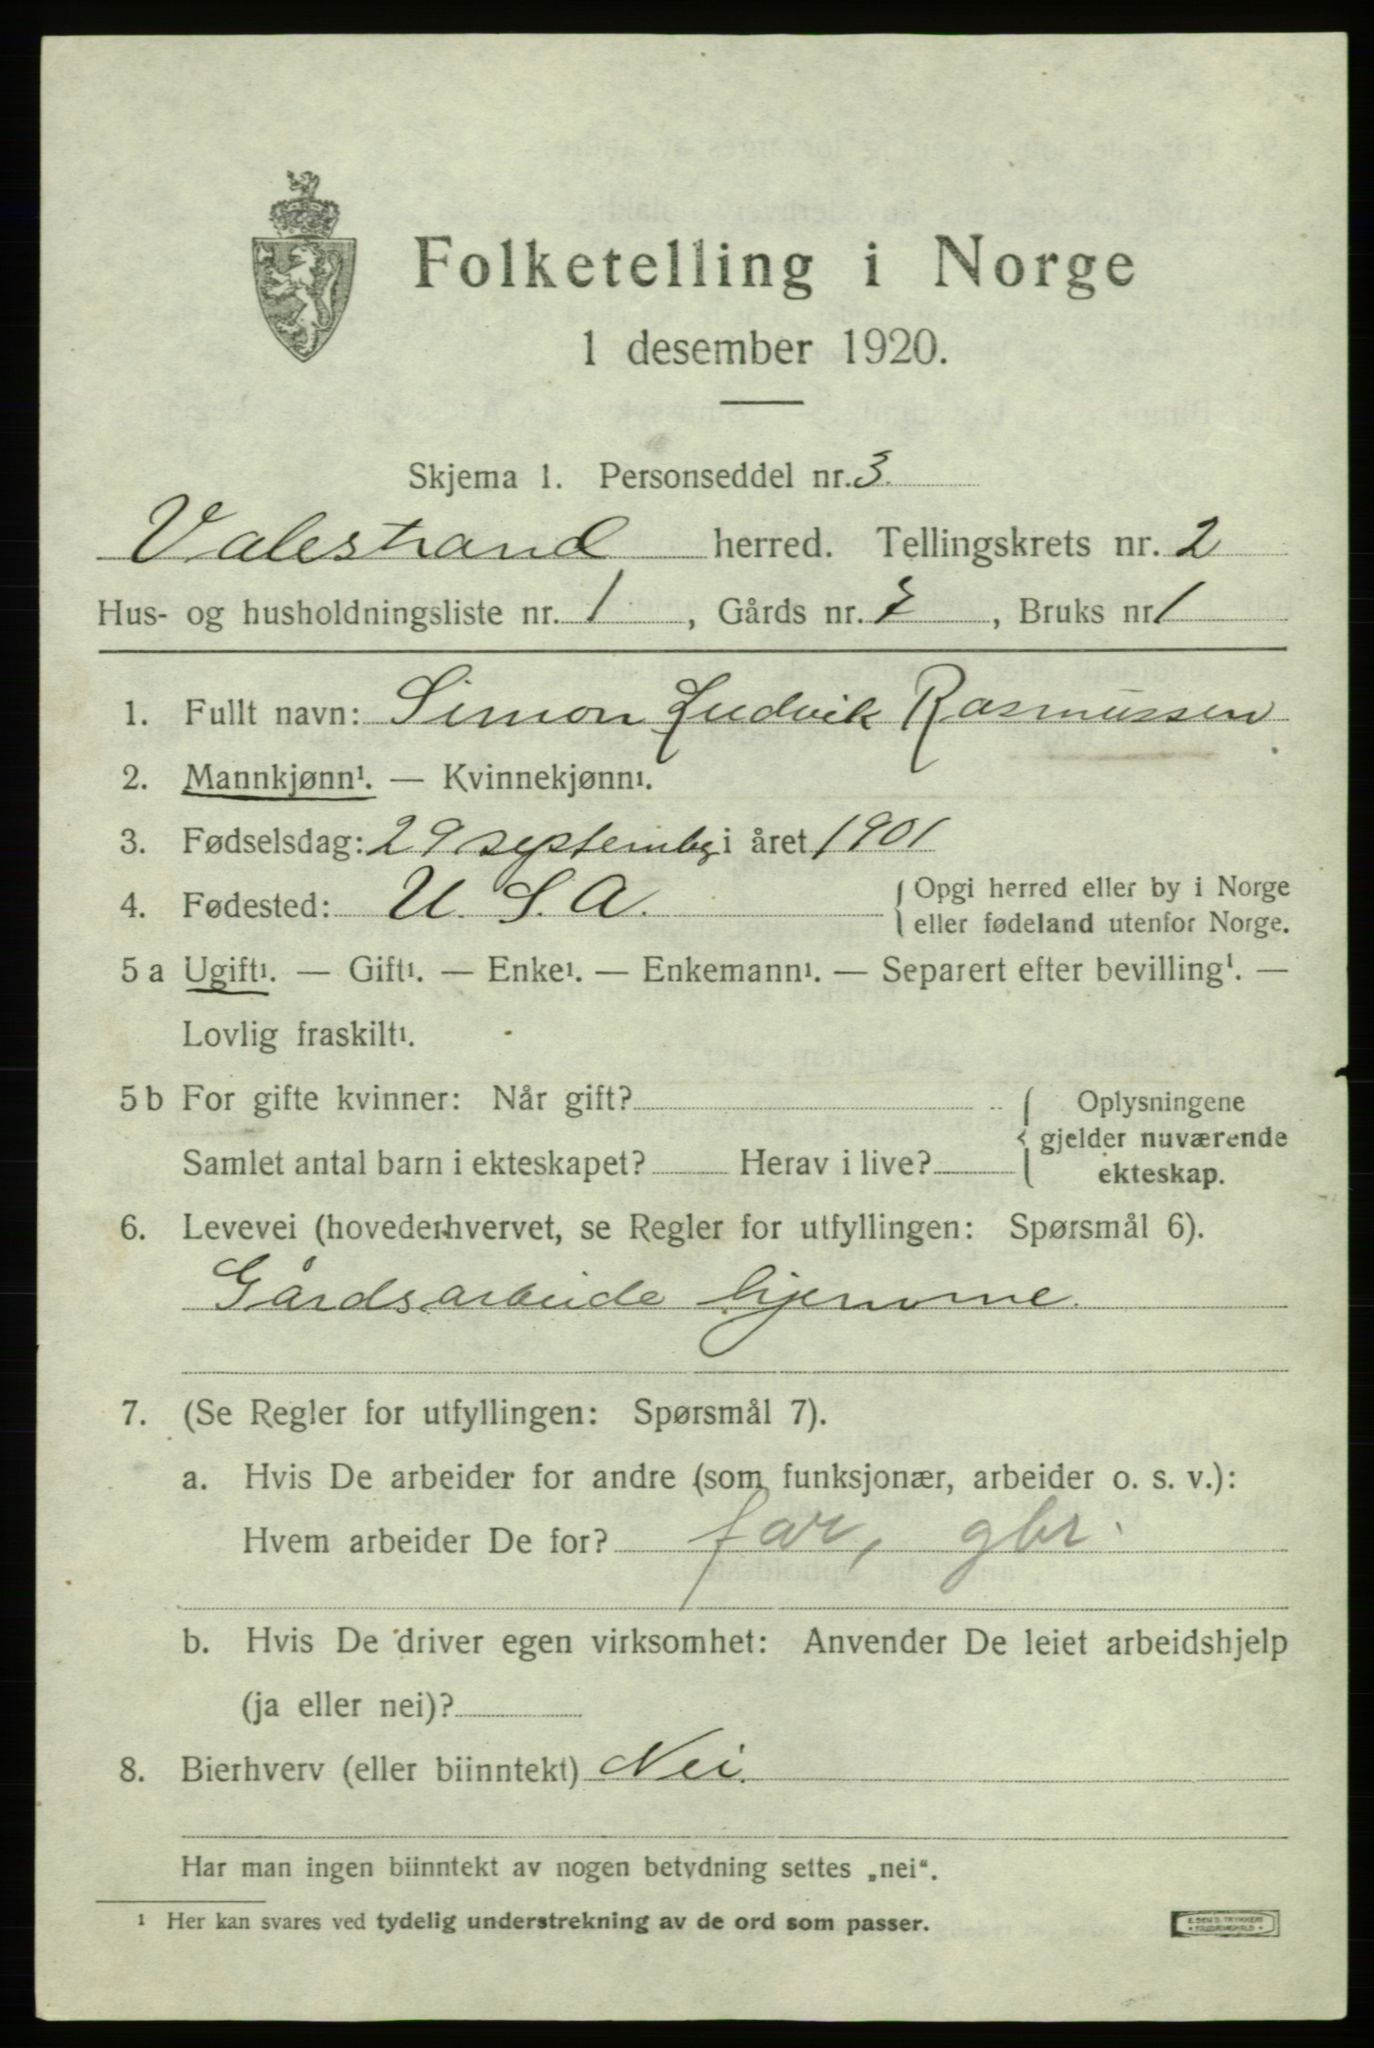 Folketelling i Norge
1 desember 1920.
Skjema 1. Personseddel nr. 3
Valestrand herred. Tellingskrets nr. 2
Hus- og husholdningsliste nr. 1, Gårds nr. 7, Bruks nr 1
1. Fullt navn: Simon Ludvik Rasmussen
2. Mannkjønn¹. — Kvinnekjønn¹.
3. Fødselsdag: 29 septembr i året 1901
4. Fødested: U. S. A. { Opgi herred eller by i Norge
eller fødeland utenfor Norge.
5 a Ugift¹. — Gift¹. — Enke¹. — Enkemann¹. — Separert efter bevilling¹. —
Lovlig fraskilt¹.
5 b For gifte kvinner: Når gift? { Oplysningene
gjelder nuværende
Samlet antal barn i ekteskapet? Herav i live? ekteskap.
6. Levevei (hovederhvervet, se Regler for utfyllingen: Spørsmål 6).
Gårdsarbeide hjemme.
7. (Se Regler for utfyllingen: Spørsmål 7).
a. Hvis De arbeider for andre (som funksjonær, arbeider o. s. v.):
Hvem arbeider De for? far, gbr.
b. Hvis De driver egen virksomhet: Anvender De leiet arbeidshjelp
(ja eller nei)?
8. Bierhverv (eller biinntekt) Nei.
Har man ingen biinntekt av nogen betydning settes „nei“.
¹ Her kan svares ved tydelig understrekning av de ord som passer.